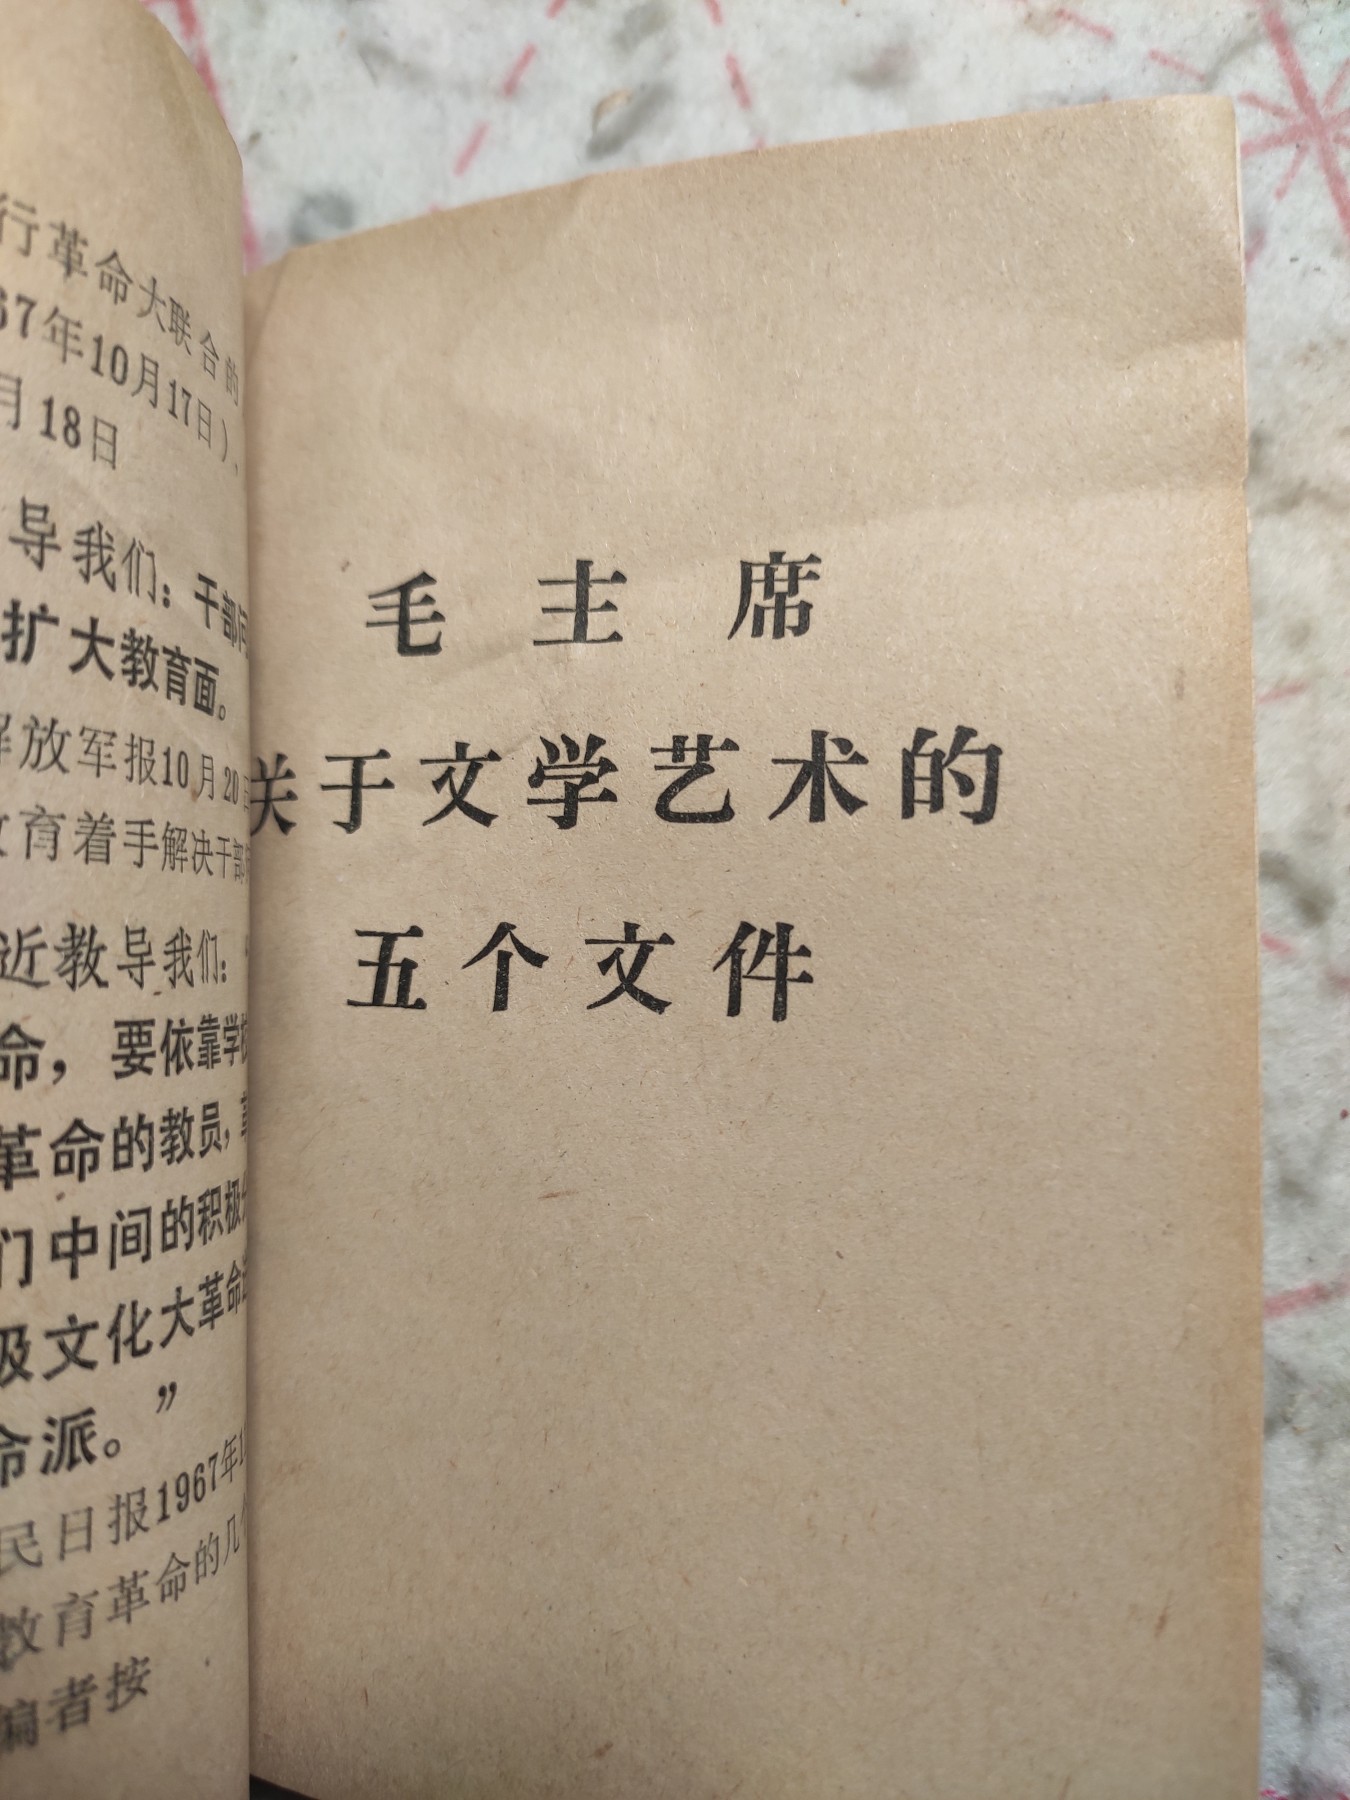 行革命大联合的
67年10月17日）、
月18日
导我们：干部问
扩大教育面。
解放军报10月20
教育着手解决干部
近教导我们：“
命，要依靠学校
革命的教员，
们中间的积极分
级文化大革命
命派。”
民日报1967年1
教育革命的几个
编者按
毛主席
关于文学艺术的
五个文件